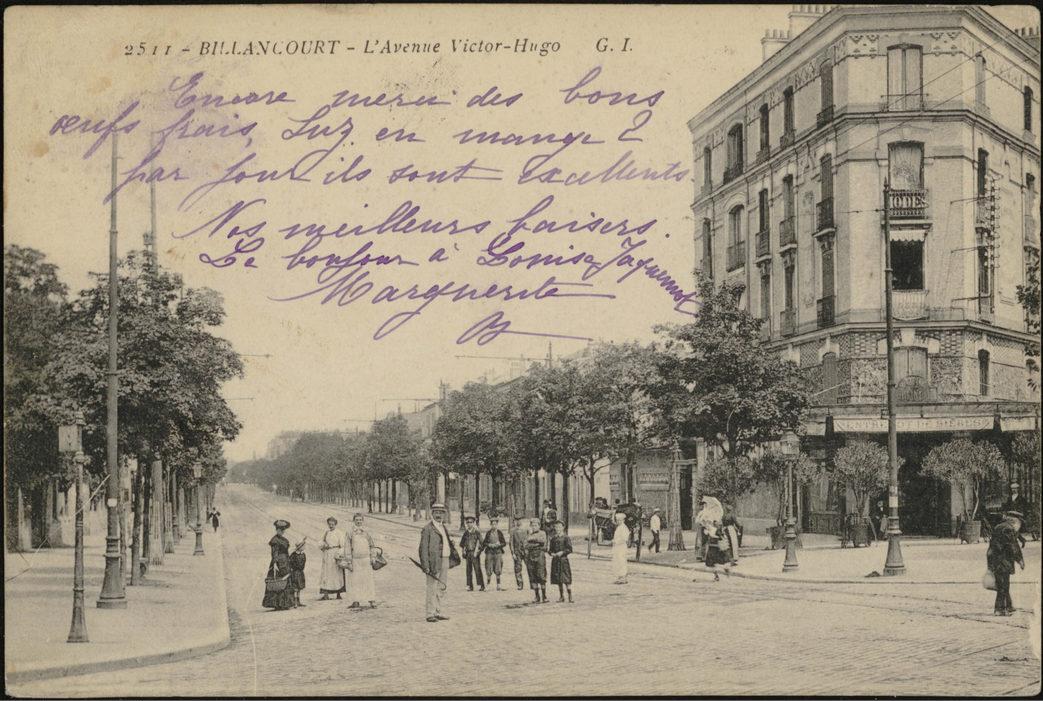 2511 - BILLANCOURT - L'Avenue Victor-Hugo G. I.
Encore merci des bons
œufs frais, Suz en mange 2
par jour ils sont excellents
Nos meilleurs baisers.
Le bonjour à Louise Jaquemot
Marguerite
ENTREPOT DE BIÈRES